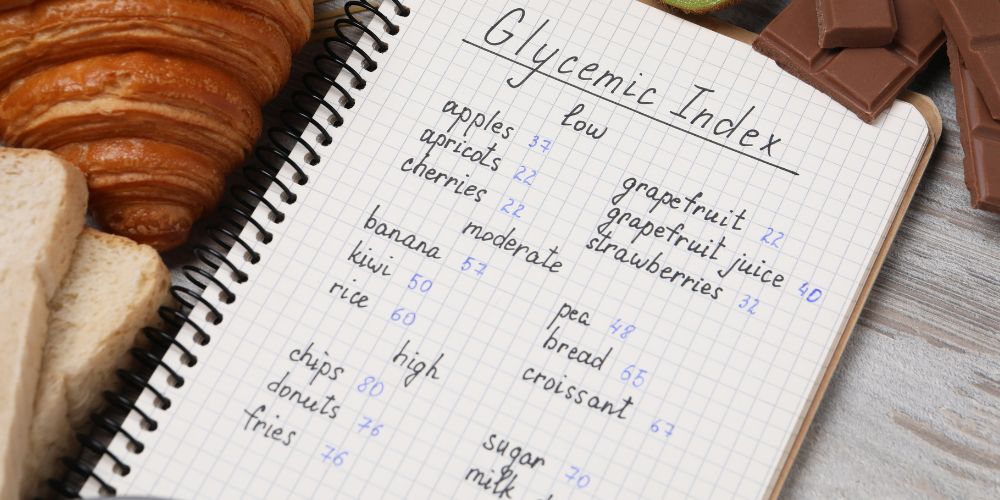 Glycemic Index
low
apples 37
apricots 22
cherries 22
grapefruit 22
grapefruit juice 40
strawberries 32
moderate
banana 57
kiwi 50
rice 60
pea 48
bread 65
croissant 67
high
chips 80
donuts 76
fries 76
sugar 70
milk